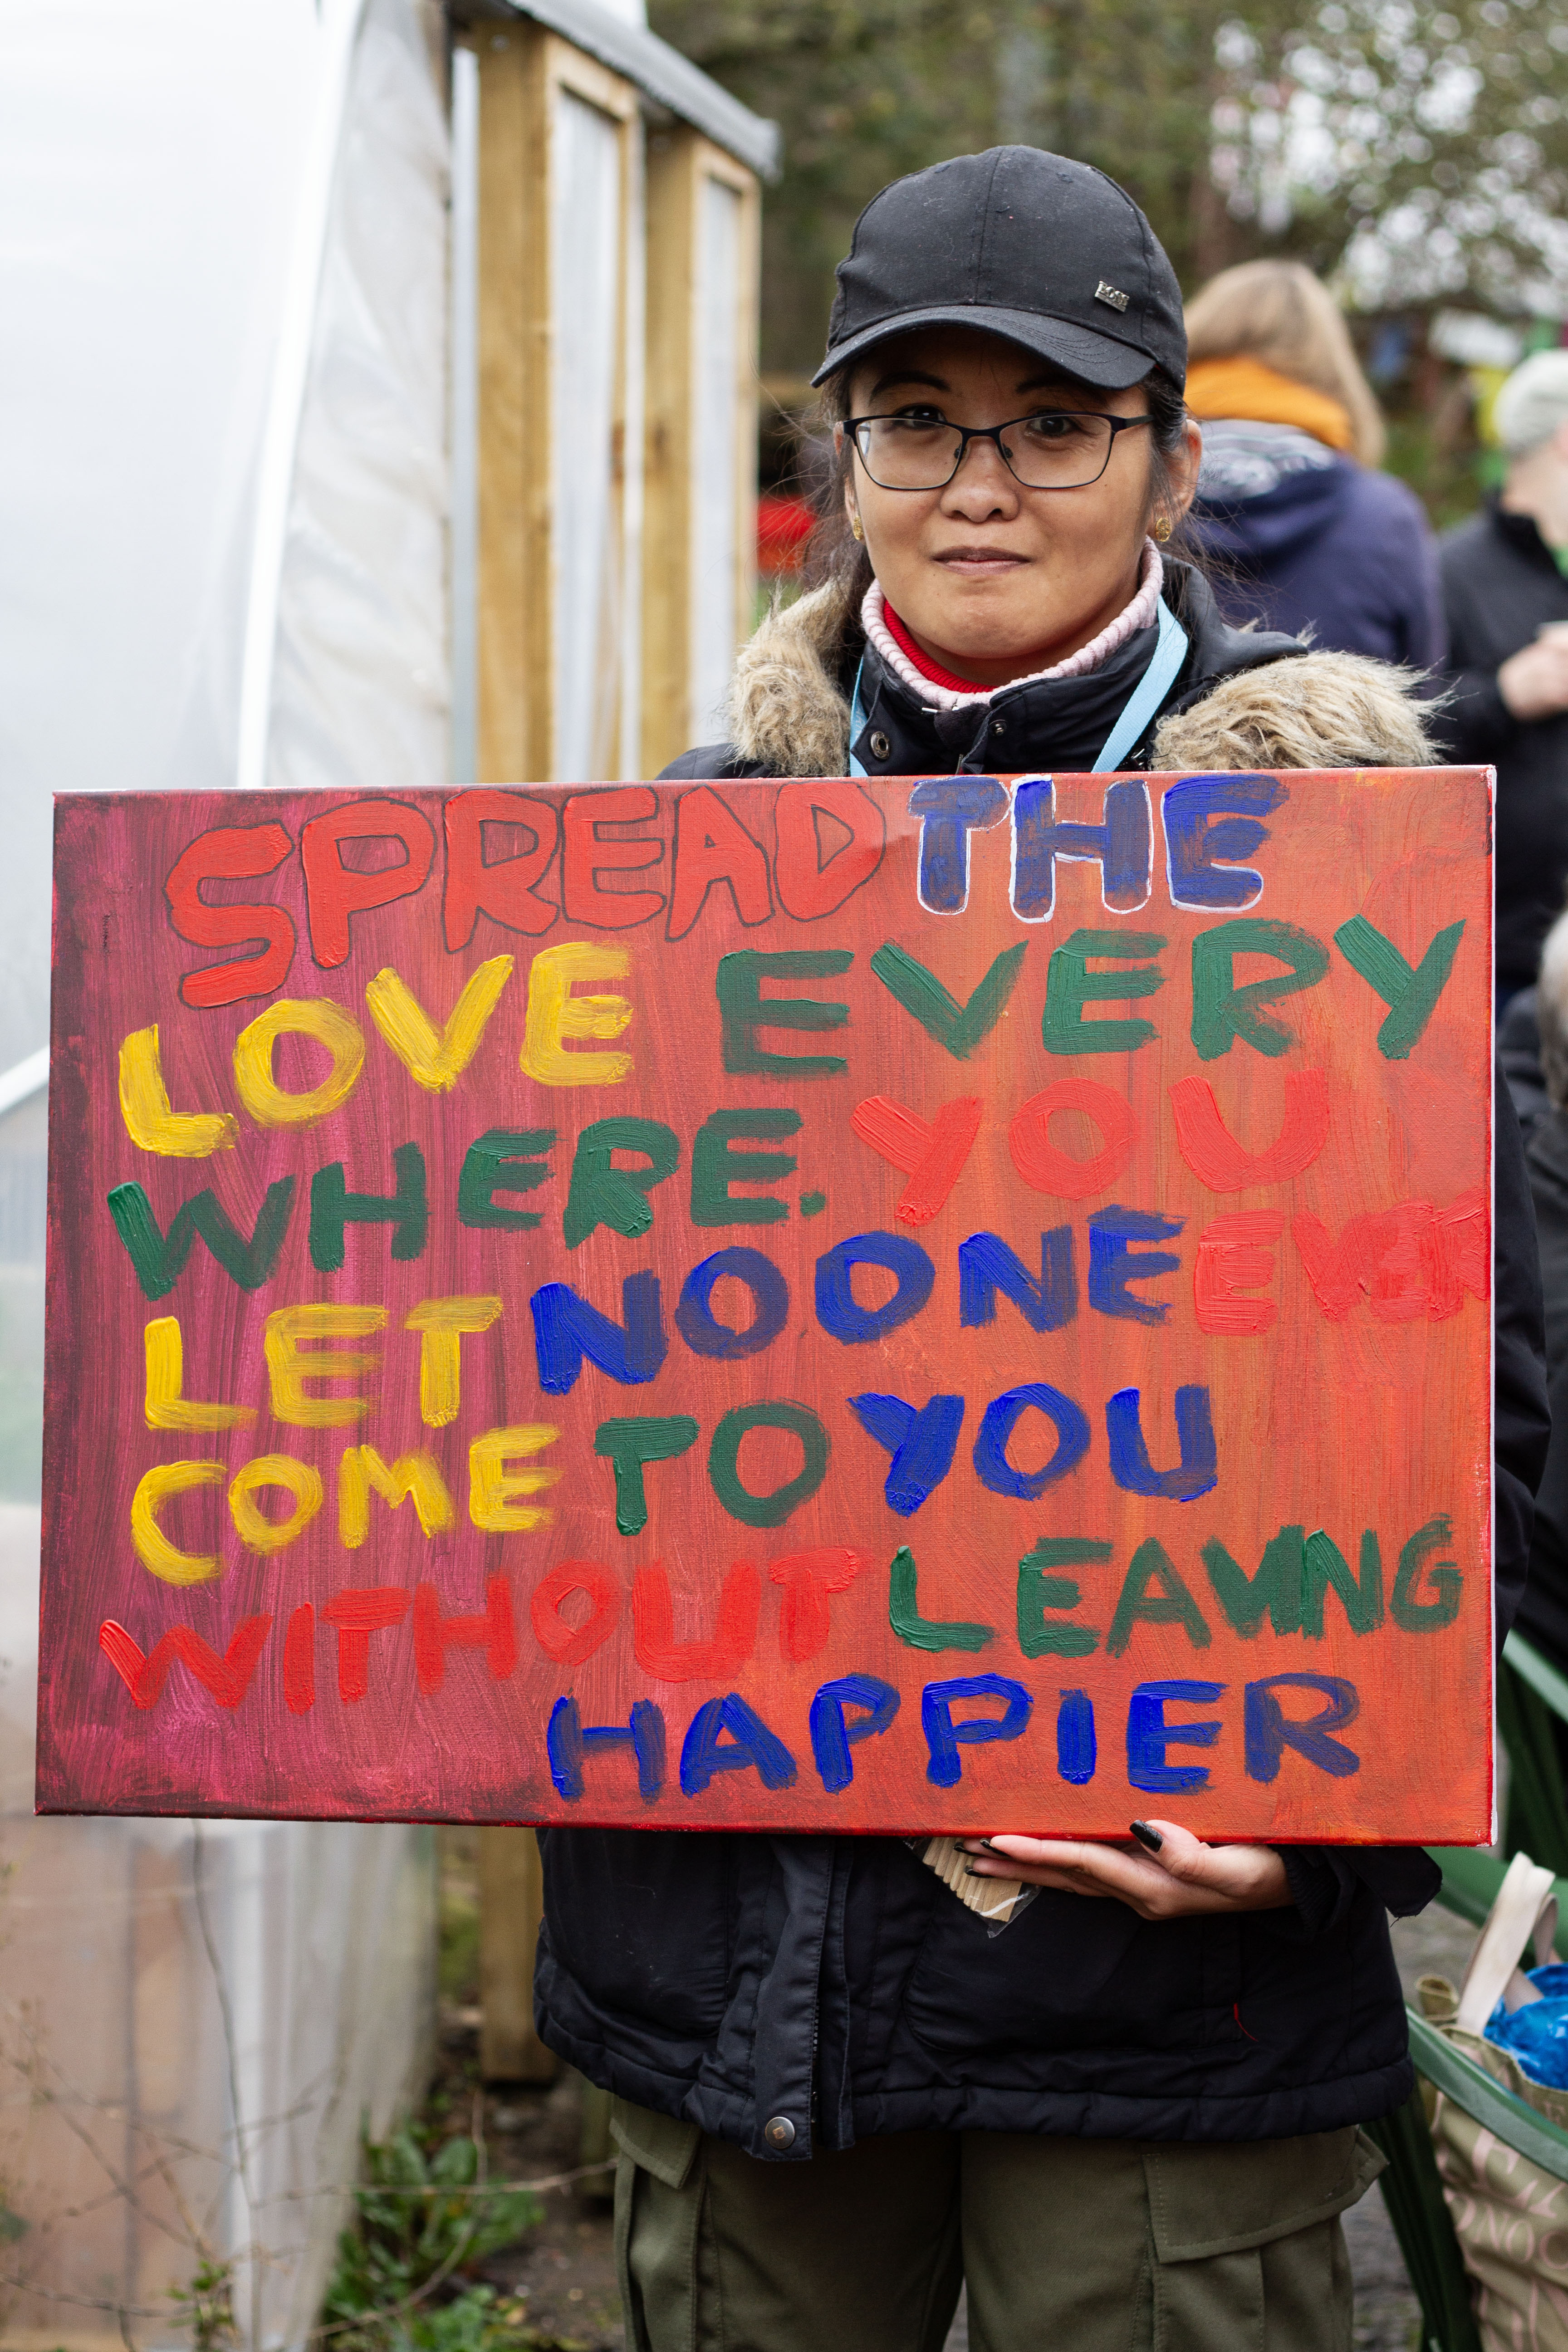 BOSS
SPREAD THE
LOVE EVERY
WHERE. YOU
LET NOONE EVER
COME TO YOU
WITHOUT LEAVING
HAPPIER